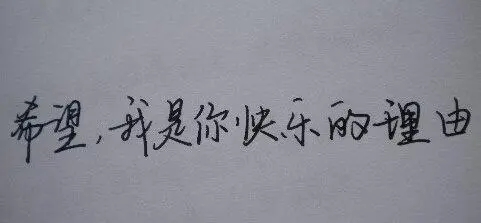 希望,我是你快乐的理由